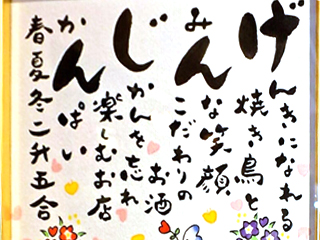 げんきになれる
焼き鳥と
みんな笑顔
こだわりの
お酒
じかんを忘れ
楽しむお店
かんぱい
春夏冬二升五合